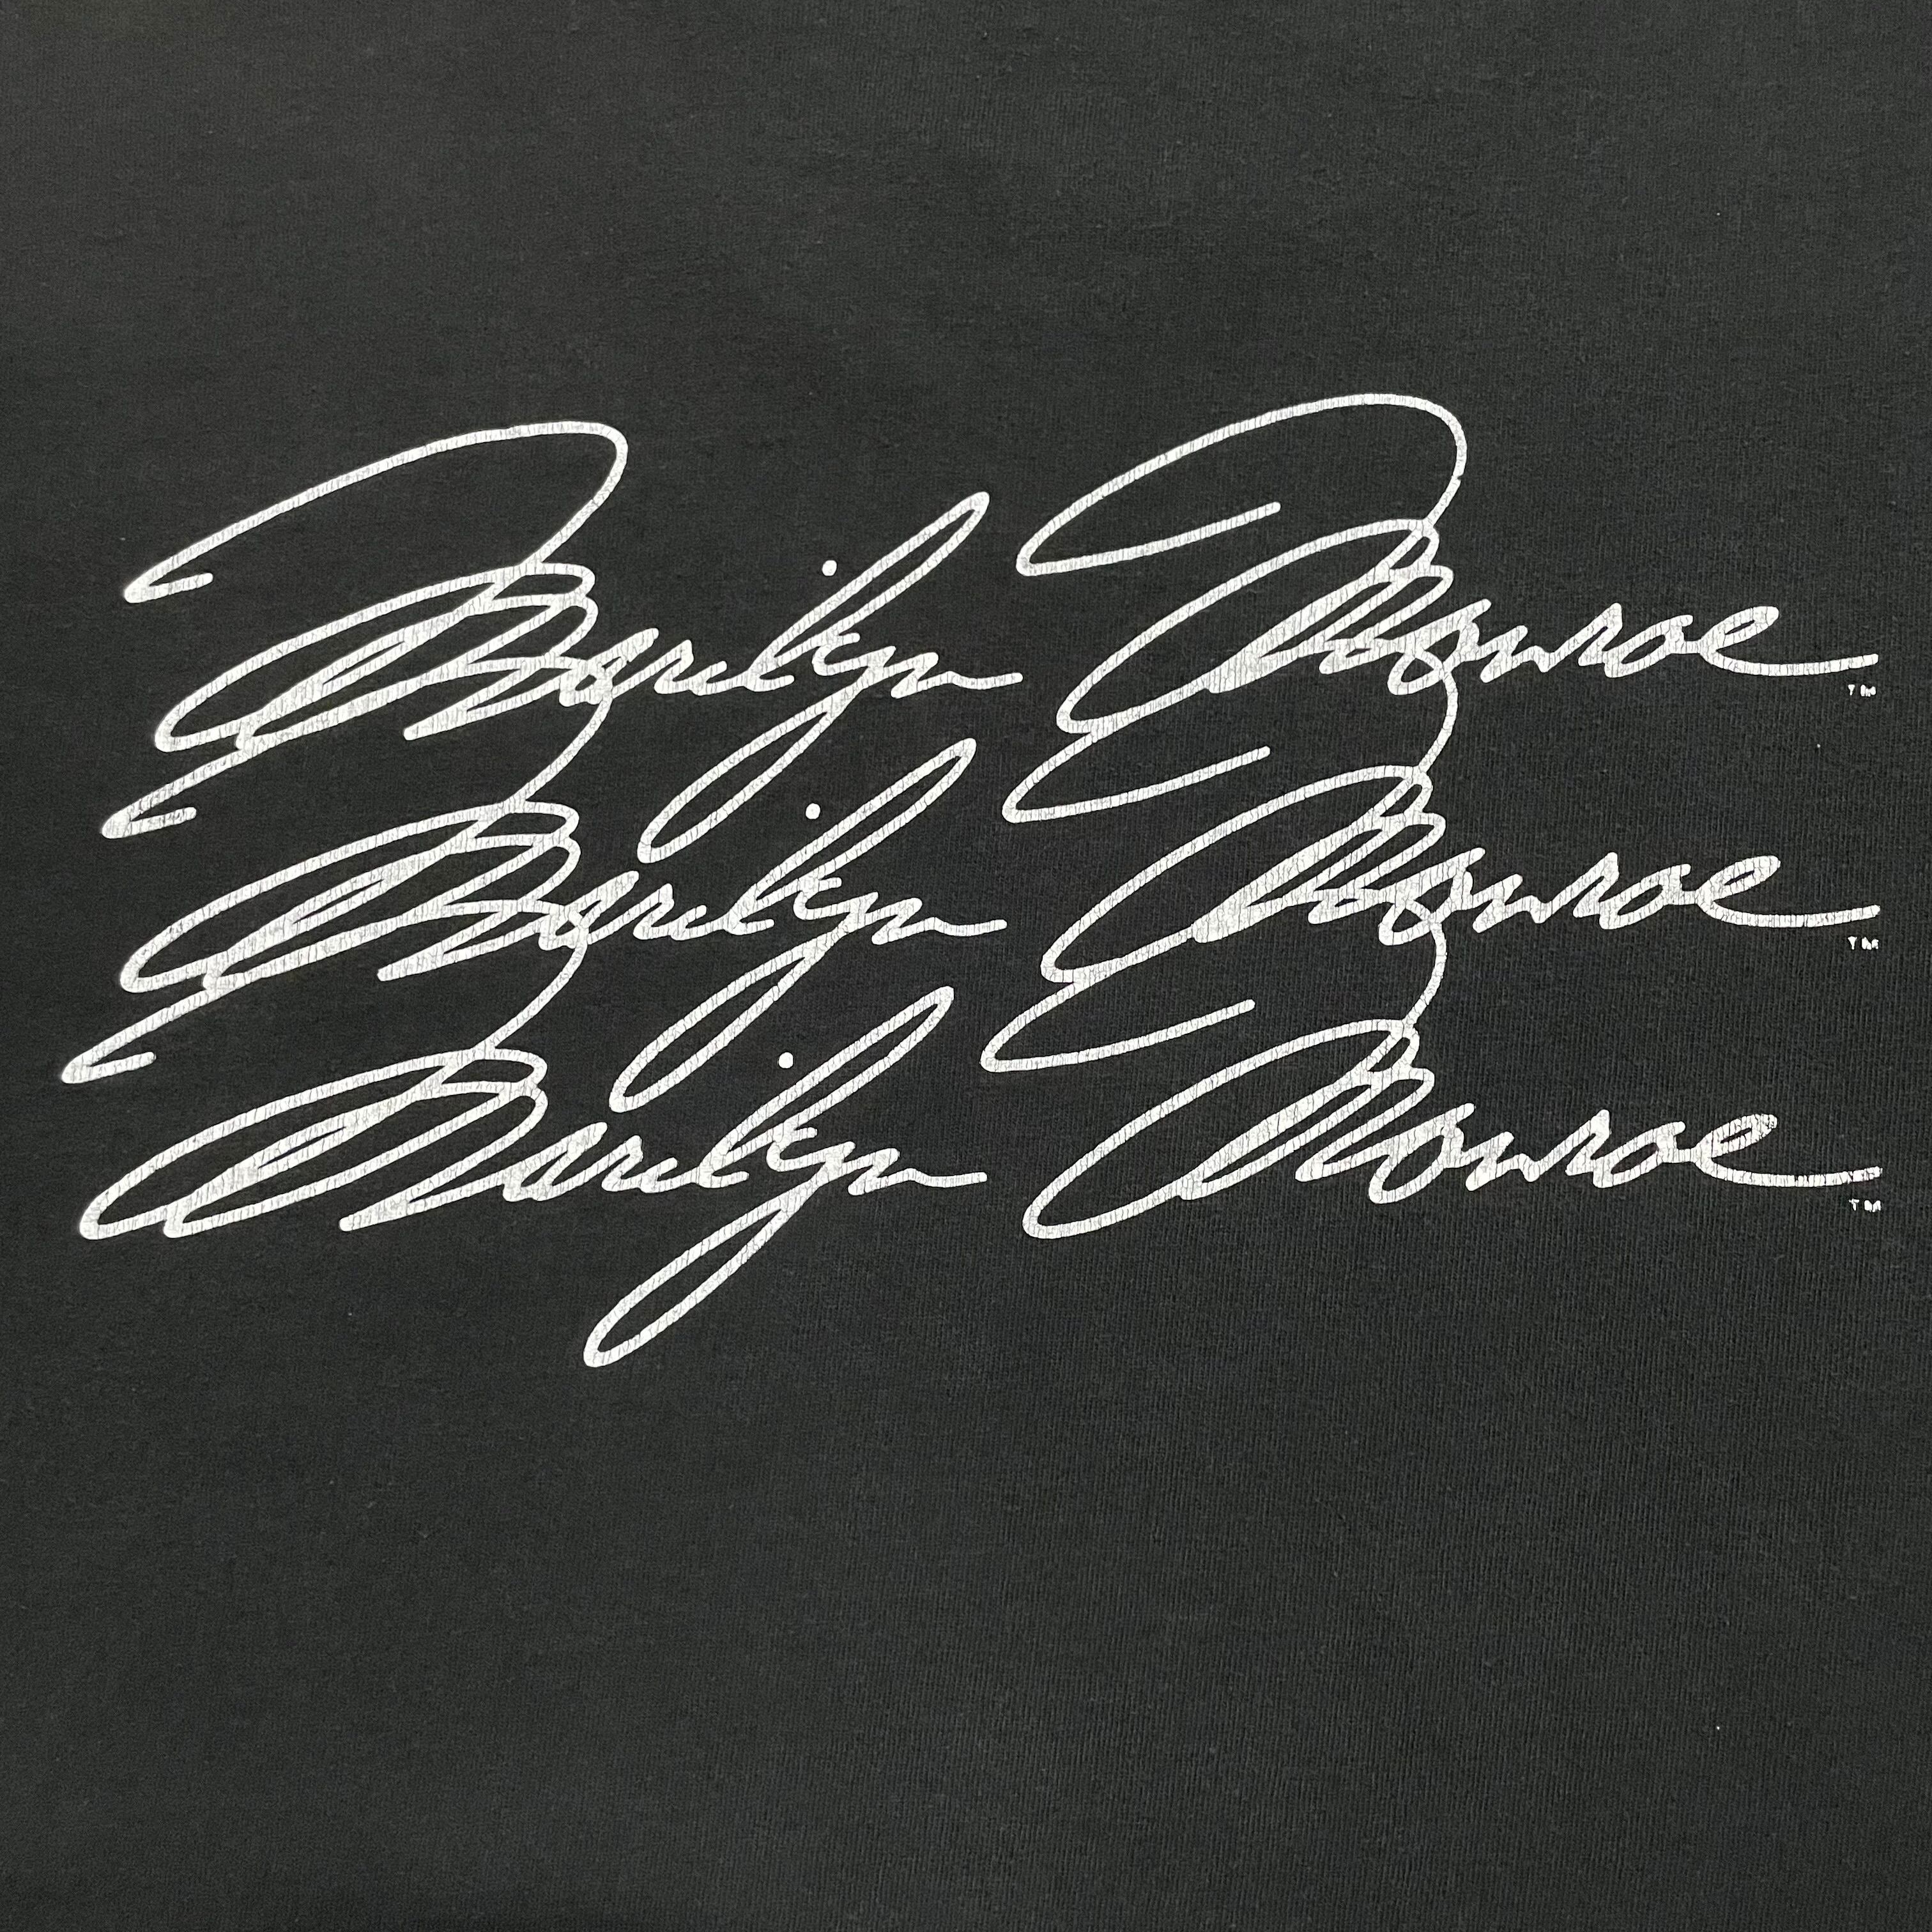 Marilyn Monroe™
Marilyn Monroe™
Marilyn Monroe™